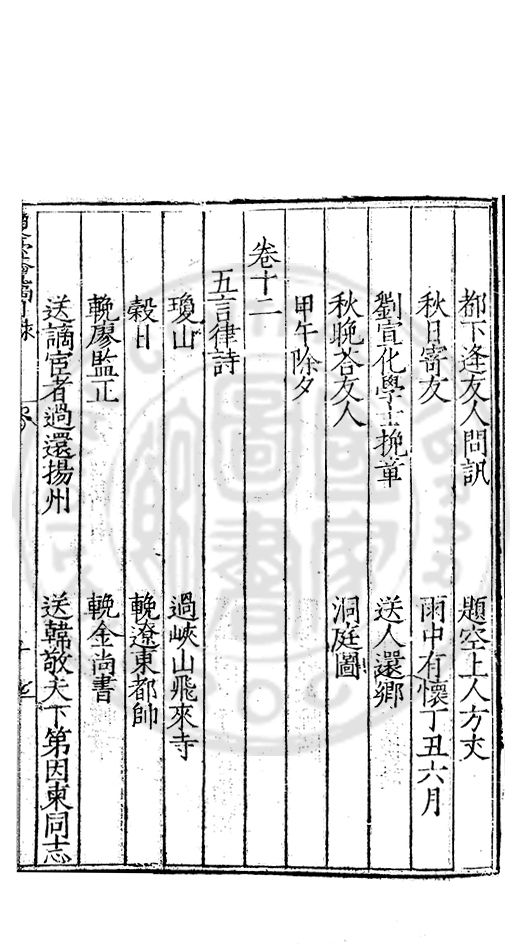 都下逢友人問訊　題空上人方丈
秋日寄友　雨中有懷丁丑六月
劉宣化學士挽章　送人還鄉
秋晚荅友人　洞庭圖
甲午除夕
卷十二
五言律詩
瓊山　過峽山飛來寺
穀日　輓遼東都帥
輓廖監正　輓金尚書
送謫宦者過還揚州　送韓敬夫下第因柬同志